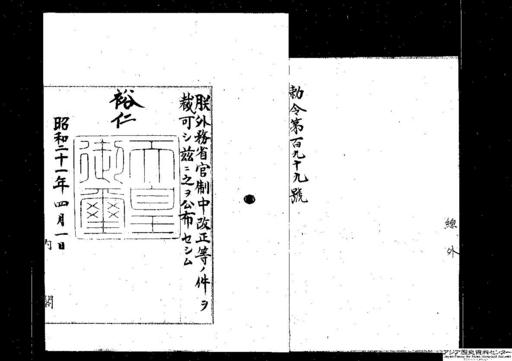 勅令第百九十九號
朕外務省官制中改正等ノ件ヲ
裁可シ茲ニ之ヲ公布セシム
裕仁
天皇
御璽
昭和二十一年四月一日
内閣
アジア歴史資料センター
Japan Center for Asian Historical Records